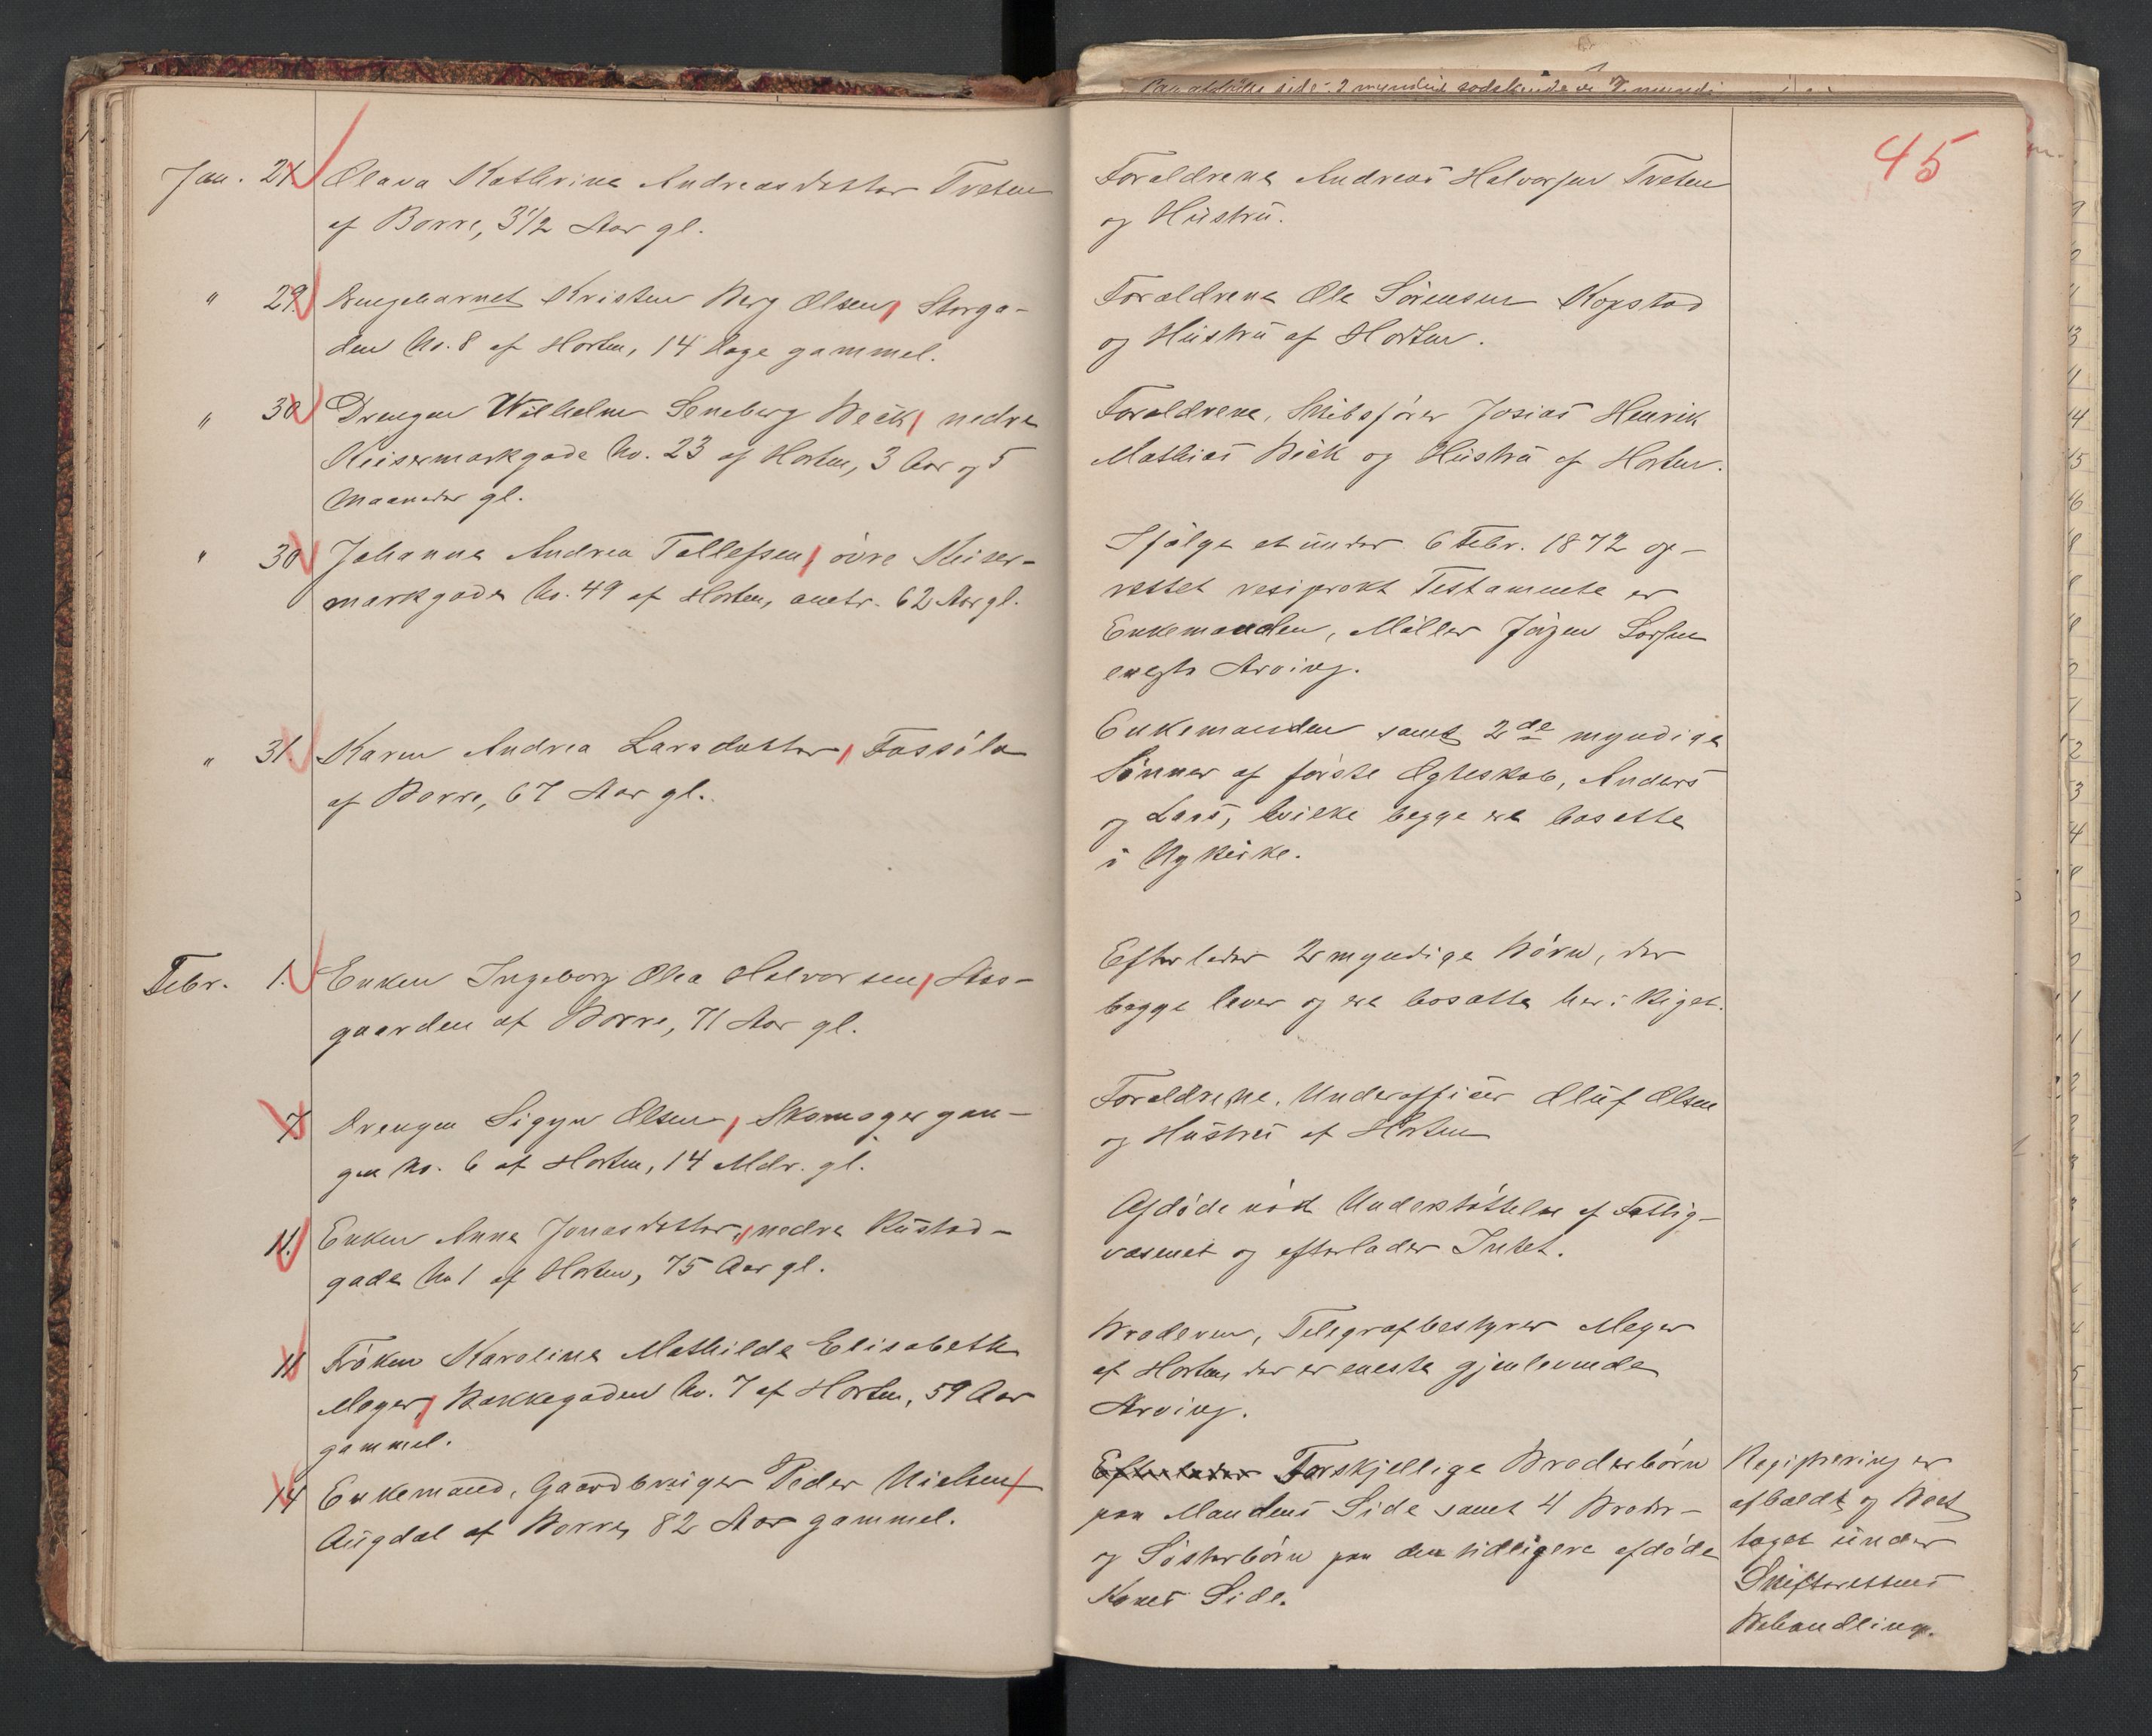 45
Jan. 24. Olava Kathrine Andreasdatter Tveten
af Borre, 3 1/2 Aar gl.
Forældrene Andreas Halvorsen Tveten
og Hustru.
" 29. Drengebarnet Kristen Berg Olsen, Storga-
den No. 8 af Horten, 14 Dage gammel.
Forældrene Ole Sørensen Kopstad
og Hustru af Horten.
" 30 Drengen Wilhelm Seneberg Beck, nedre
Keisermarkgade No. 23 af Horten, 3 Aar og 5
Maaneder gl.
Forældrene, Skibsfører Josias Henrik
Mathias Beck og Hustru af Horten.
" 30 Johanne Andrea Tollefsen, övre Keiser-
markgade No. 49 af Horten, omtr. 62 Aar gl.
Ifølge et under 6 Febr. 1872 op-
rettet resiprokt Testamente er
Enkemanden, Møller Jörgen Larsen
eneste Arving.
" 31. Karen Andrea Larsdatter, Fossöla
af Borre, 67 Aar gl.
Enkemanden samt 2de myndige
Sönner af förste Ægteskab, Anders
og Lars, hvilke begge ere bosatte
i Nykirke.
Febr. 1. Enken Ingeborg Olea Halvorsen, Aas-
gaarden af Borre, 71 Aar gl.
Efterlader 2 myndige Börn, der
begge lever og ere bosatte her i Riget.
7. Drengen Sigyn Olsen, Skomagergan-
gen No. 6 af Horten, 14 Mdr. gl.
Forældrene, Underofficer Oluf Olsen
og Hustru af Horten
11. Enken Anne Jonasdatter, nedre Rustad-
gade No 1 af Horten, 75 Aar gl.
Afdöde nöd Understöttelse af Fattig-
væsenet og efterlader Intet.
11 Fröken Karoline Mathilde Elisabeth
Meyer, Bakkegaden No. 7 af Horten, 59 Aar
gammel.
Broderen, Telegrafbestyrer Meyer
af Horten, der er eneste gjenlevende
Arving.
14 Enkemand, Gaardbruger Peder Nielsen
Augdal af Borre, 82 Aar gammel.
Efterlader Forskjellige Broderbörn
paa Mandens Side samt 4 Broder-
og Sösterbörn paa den tidligere afdöde
Kones Side.
Registrering er
afholdt og Boet
taget under
Skifterettens
Behandling.